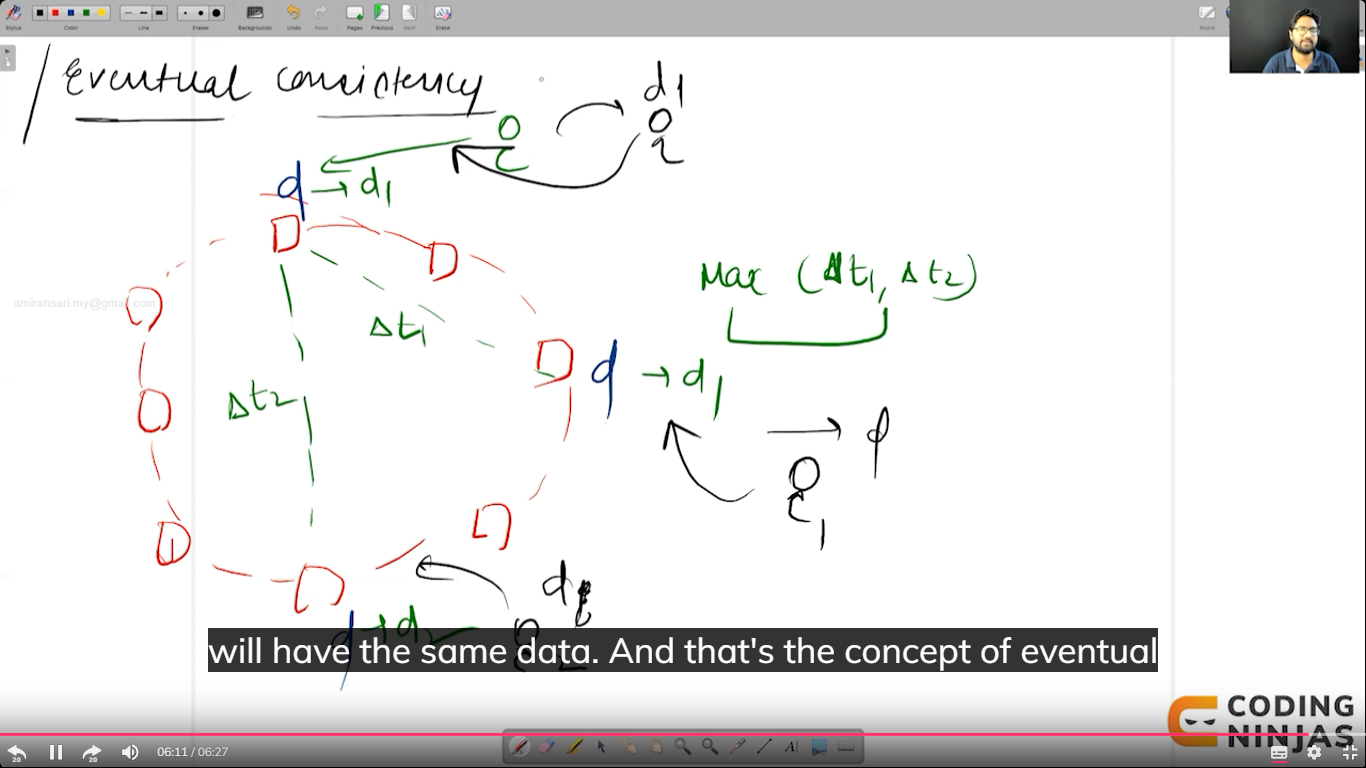 Stylus
Color
Line
Eraser
Backgrounds
Undo
Redo
Pages
Previous
Next
Erase
Board
Eventual consistency
d1
d → d1
D
D
Max (Δt1, Δt2)
amiransari.my@gmail.com
Δt1
D d → d1
Δt2
d → d2
will have the same data. And that's the concept of eventual
CODING
NINJAS
20
20
06:11 / 06:27